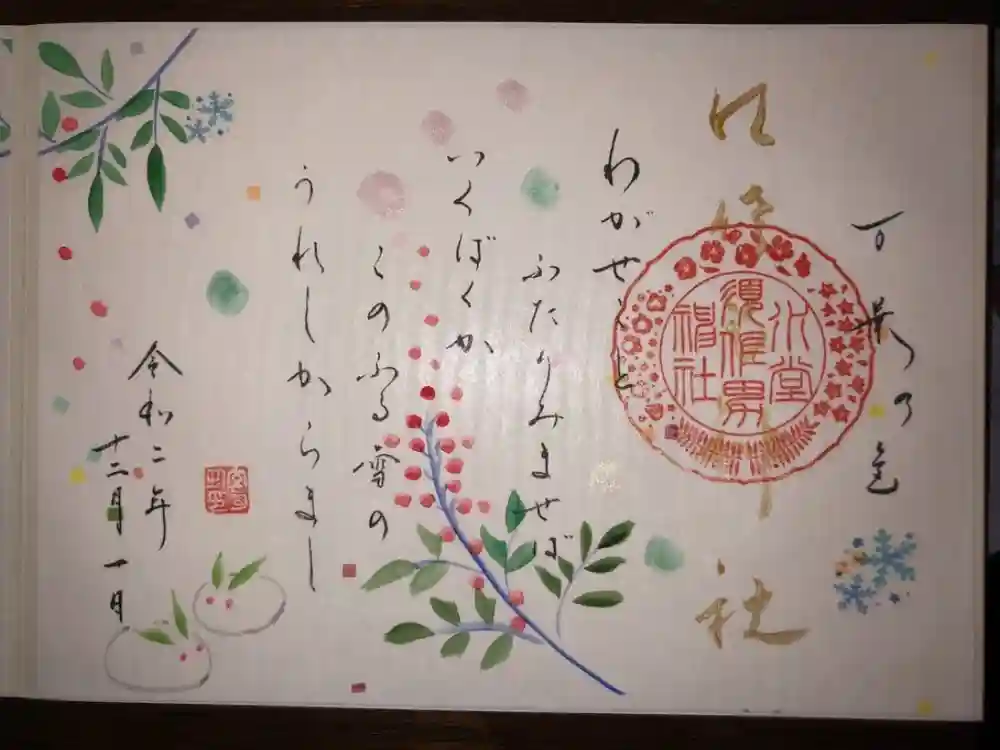 万葉の色
わがせこと
ふたりみませば
いくばくか
このふる雪の
うれしからまし
令和二年
十二月一日
須佐男
神社